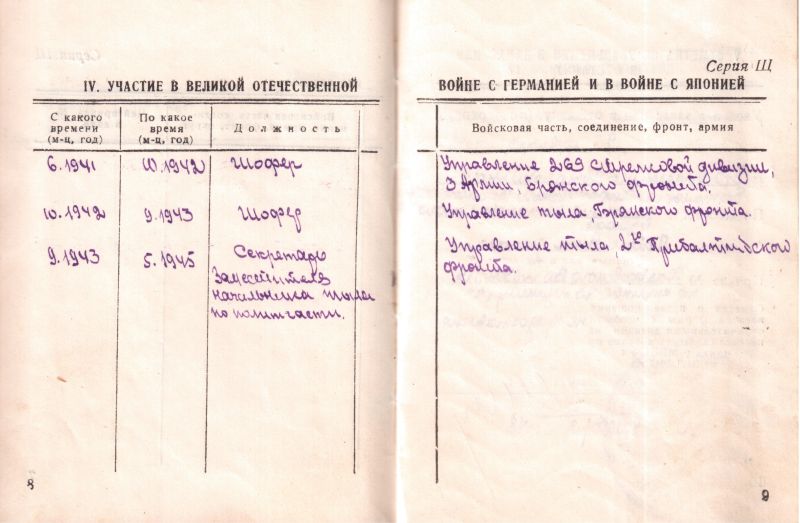 Серия Щ
IV. УЧАСТИЕ В ВЕЛИКОЙ ОТЕЧЕСТВЕННОЙ
ВОЙНЕ С ГЕРМАНИЕЙ И В ВОЙНЕ С ЯПОНИЕЙ
С какого
времени
(м-ц, год)
По какое
время
(м-ц, год)
Должность
Войсковая часть, соединение, фронт, армия
6.1941 10.1942 Шофер
Управление 269 Стрелковой дивизии,
3 Армии, Брянского фронта.
10.1942 9.1943 Шофер
Управление тыла, Брянского фронта.
9.1943 5.1945 Секретарь
Заместителя
начальника тыла
по политчасти.
Управление тыла, 2го Прибалтийского
фронта.
8
9